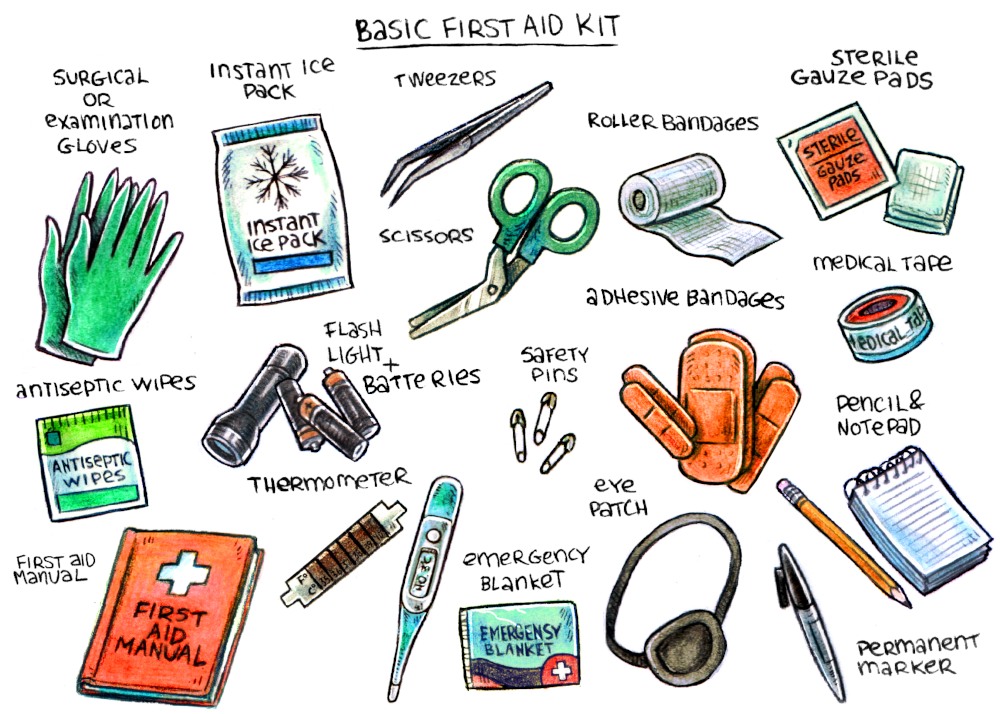 BASIC FIRST AID KIT
SURGICAL
OR
EXAMINATION
GLOVES
INSTANT ICE
PACK
INSTANT
ICE PACK
TWEEZERS
SCISSORS
ROLLER BANDAGES
STERILE
GAUZE PADS
STERILE
GAUZE
PADS
MEDICAL TAPE
MEDICAL TAP
ADHESIVE BANDAGES
FLASH
LIGHT +
BATTERIES
SAFETY
PINS
ANTISEPTIC WIPES
ANTISEPTIC
WIPES
PENCIL &
NOTEPAD
THERMOMETER
EYE
PATCH
FIRST AID
MANUAL
FIRST
AID
MANUAL
EMERGENCY
BLANKET
EMERGENSY
BLANKET
PERMANENT
MARKER